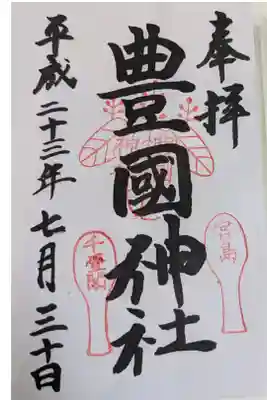 奉拝
豊國神社
宮島
千畳閣
平成二十三年七月三十日